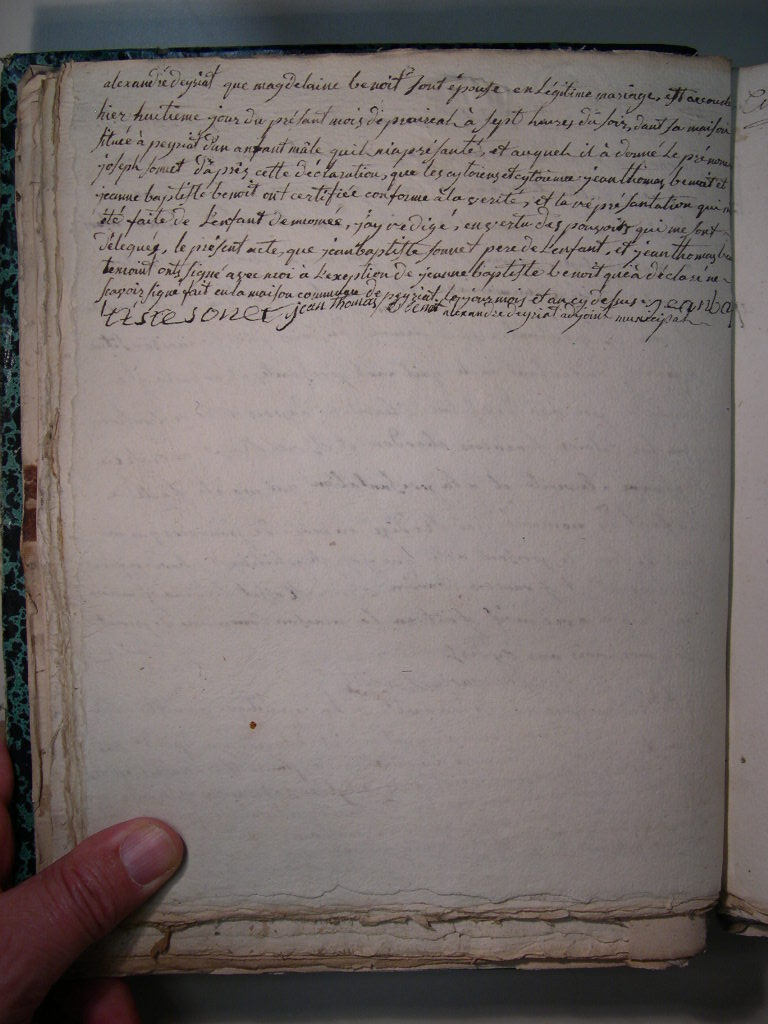 alexandre deyriat que magdelaine benoit sont épouse en Légitime mariage, est accouch
hier huitieme jour du présant mois de prairial à sept heures du soir, dant sa maison
situeé à peyriat d'un anfant mâle quil mà présanté, et auquel il à donné Le prénoms
joseph sonnet d'après cette déclaration, que les citoiens et citoienne jean thomas benoit et
jeanne baptiste benoit ont certifiée conforme à la verité, et la réprésantation qui m
été faite de L'enfant denomée, jay redigé, en vertu des pouvoirs qui me sont
délegues, le présent acte, que jean baptiste sonnet pere de L'enfant, et jean thomas be
temoint onts signé avec moi à L'exeption de jeanne baptiste benoit qui à déclaré ne
sçavoir signé fait en la maison commune de peyriat, les jours mois et an cy desus jean ba
tiste sonet jean thomas benoit alexandre deyriat adjoint municipal